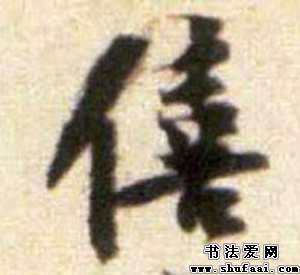 僖
书法爱网
www.shufaai.com